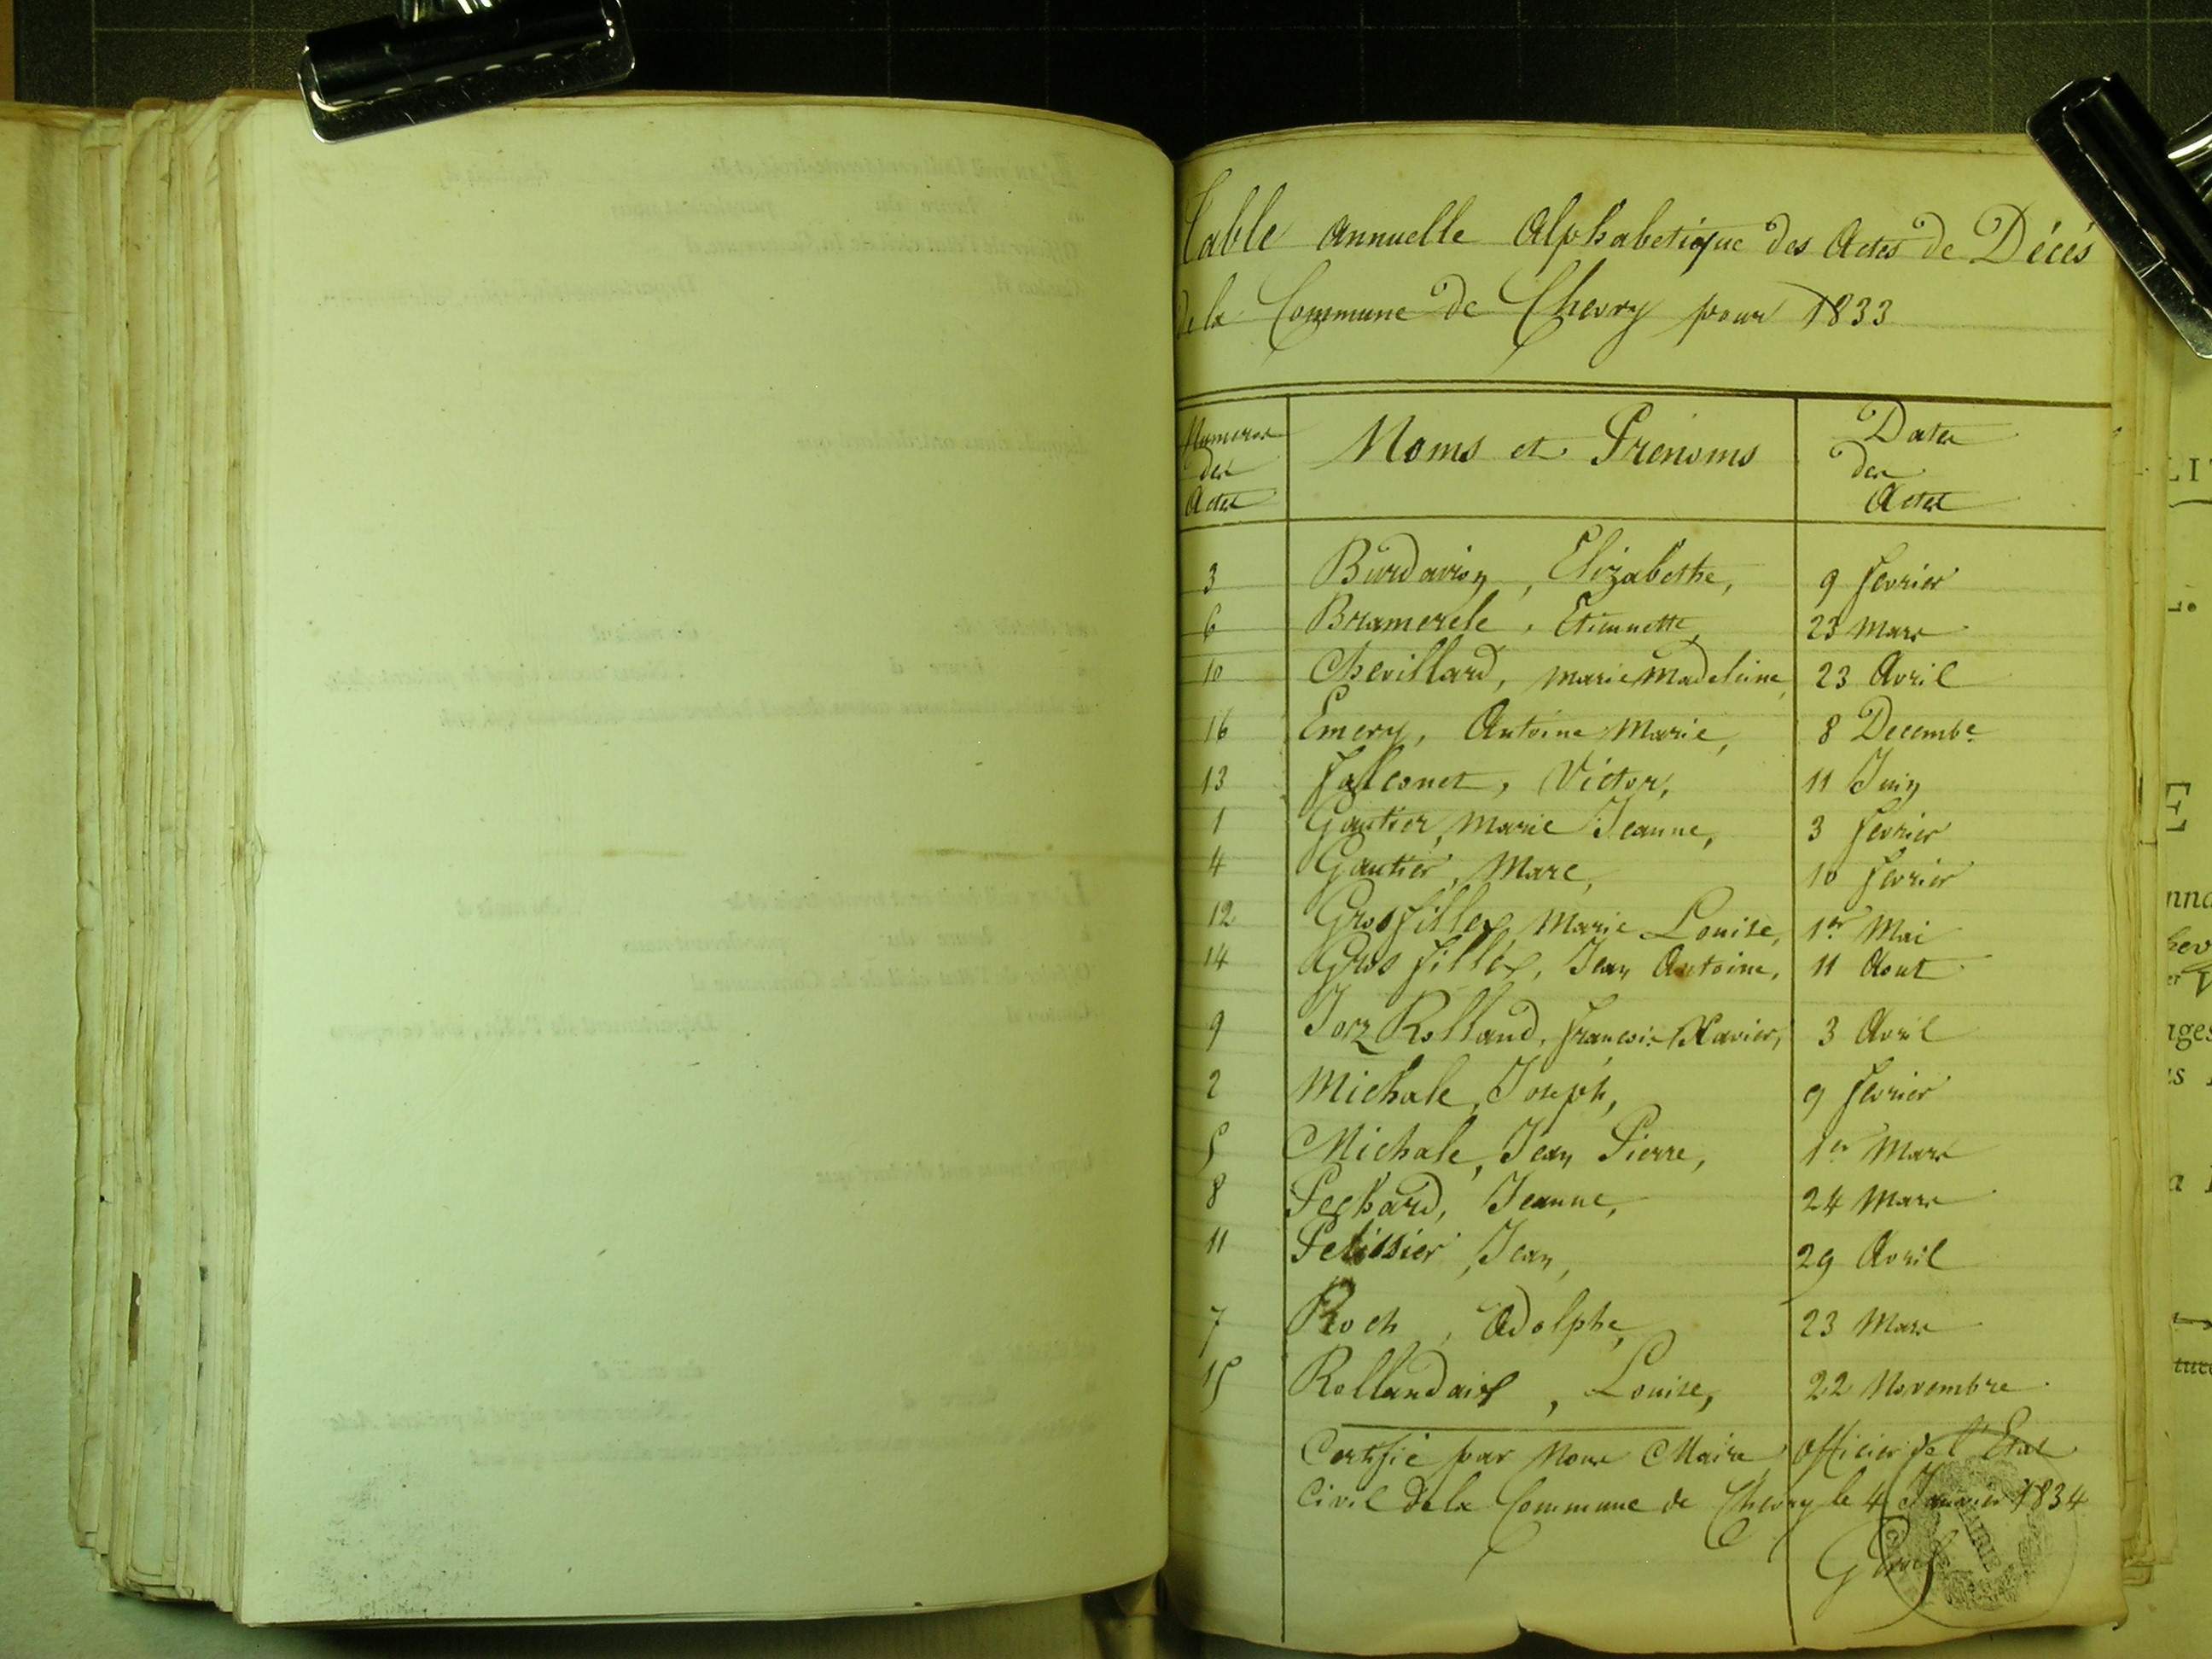 Table Annuelle Alphabetique des Actes de Décés
de la Commune de Chevry pour 1833
Numeros des Actes
Noms et Prénoms
Dates des Actes
3 Burdairon, Elizabethe, 9 fevrier
6 Bramerele, Etiennette, 23 Mars
10 Chevillard, Marie Madeleine, 23 Avril
16 Emery, Antoine Marie, 8 Decembe
13 falconet, Victor, 11 Juin
1 Gautier, Marie Jeanne, 3 fevrier
4 Gautier, Marc, 10 fevrier
12 Grosfillex, Marie Louise, 1er Mai
14 Gros fillex, Jean Antoine, 11 Aout
9 Jorz Rolland, francois Xavier, 3 Avril
2 Michale, Joseph, 9 fevrier
5 Michale, Jean Pierre, 1er Mars
8 Pechard, Jeanne, 24 Mars
11 Pelissier, Jean, 29 Avril
7 Roch, Adolphe, 23 Mars
15 Rollandaix, Louise, 22 Novembre
Certifié par Nous Maire Officier de l'Etat
Civil de la Commune de Chevry le 4 Janvier 1834
MAIRIE